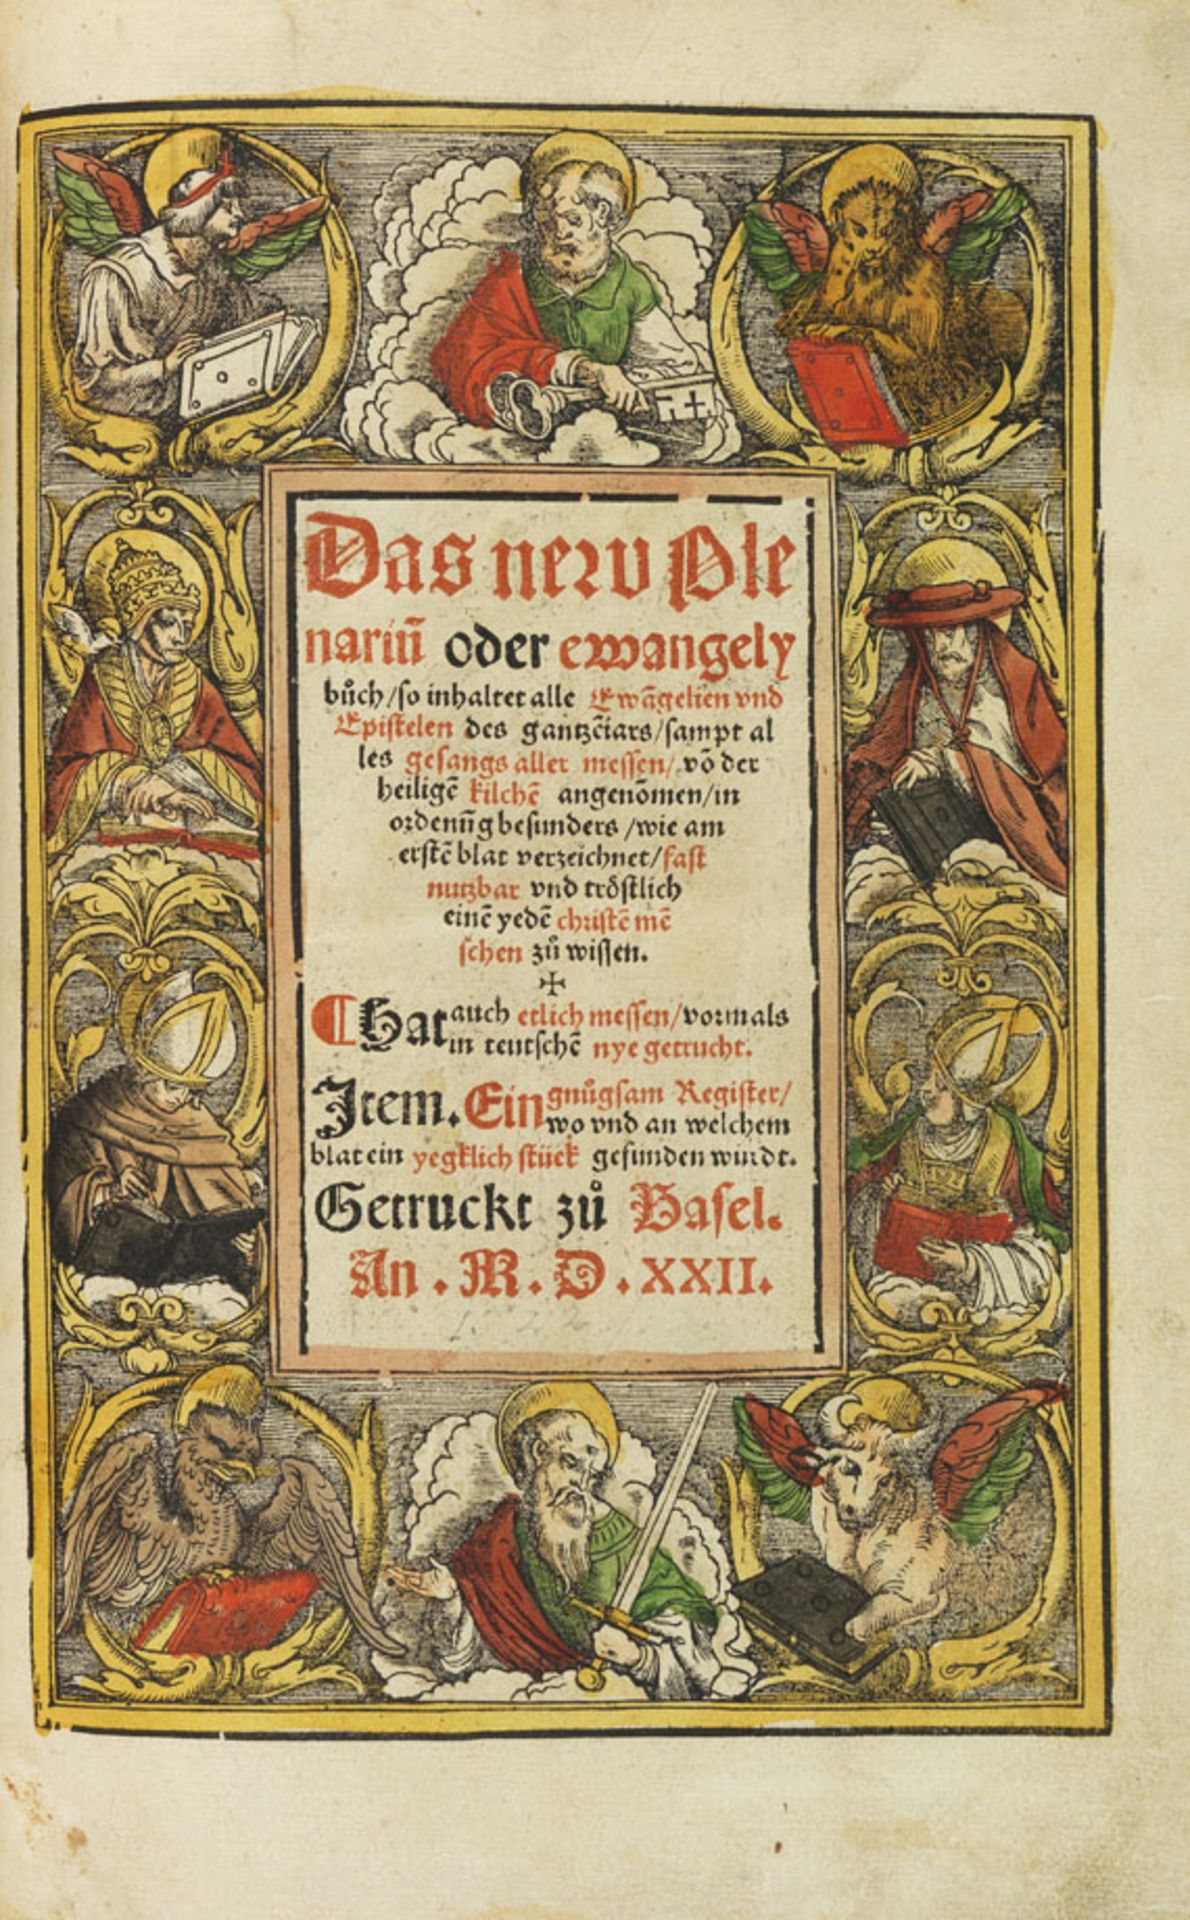 Das new Ple
nariū oder ewangely
bůch/so inhaltet alle Ewāgelien vnd
Epistelen des gantzēiars/sampt al
les gesangs aller messen/vō der
heiligē kilchē angenōmen/in
ordenūg besunders/wie am
erstē blat verzeichnet/fast
nutzbar vnd tröstlich
einē yedē christē mē
schen zů wissen.
✢
¶ Hat auch etlich messen/vormals
in teutschē nye getruckt.
Item. Ein gnůgsam Register/
wo vnd an welchem
blat ein yegklich stück gefunden wurdt.
Getruckt zů Basel.
An . M . D . XXII.